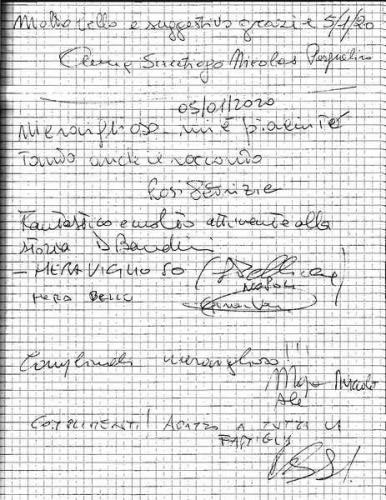 Molto bello e suggestivo grazie 5/1/20
Santiago Nicolas Pasqualino
05/01/2020
Meraviglioso mi è piaciuto
Tanto anche il racconto
Fantastico e molto attinente alla
storia
- MERAVIGLIOSO
NAPOLI
MERA BELLO
Complimenti meraviglioso!!!
Ale
COMPLIMENTI! A TUTTA LA
FAMIGLIA